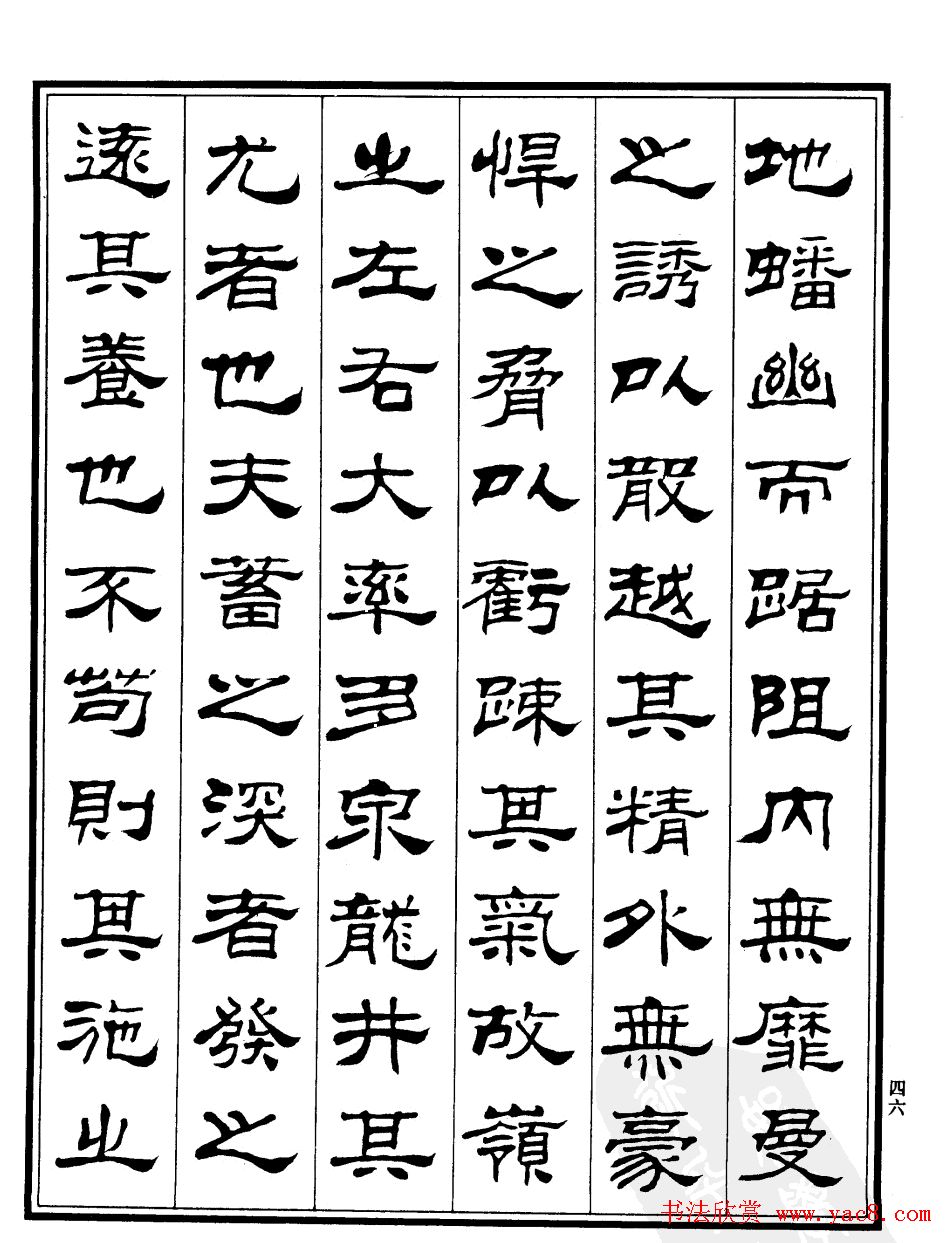 地蟠幽而踞阻內無靡曼
之誘以散越其精外無豪
悍之脅以虧踈其氣故嶺
之左右大率多泉龍井其
尤者也夫蓄之深者發之
遠其養也不苟則其施之
四六
书法欣赏 www.yac8.com